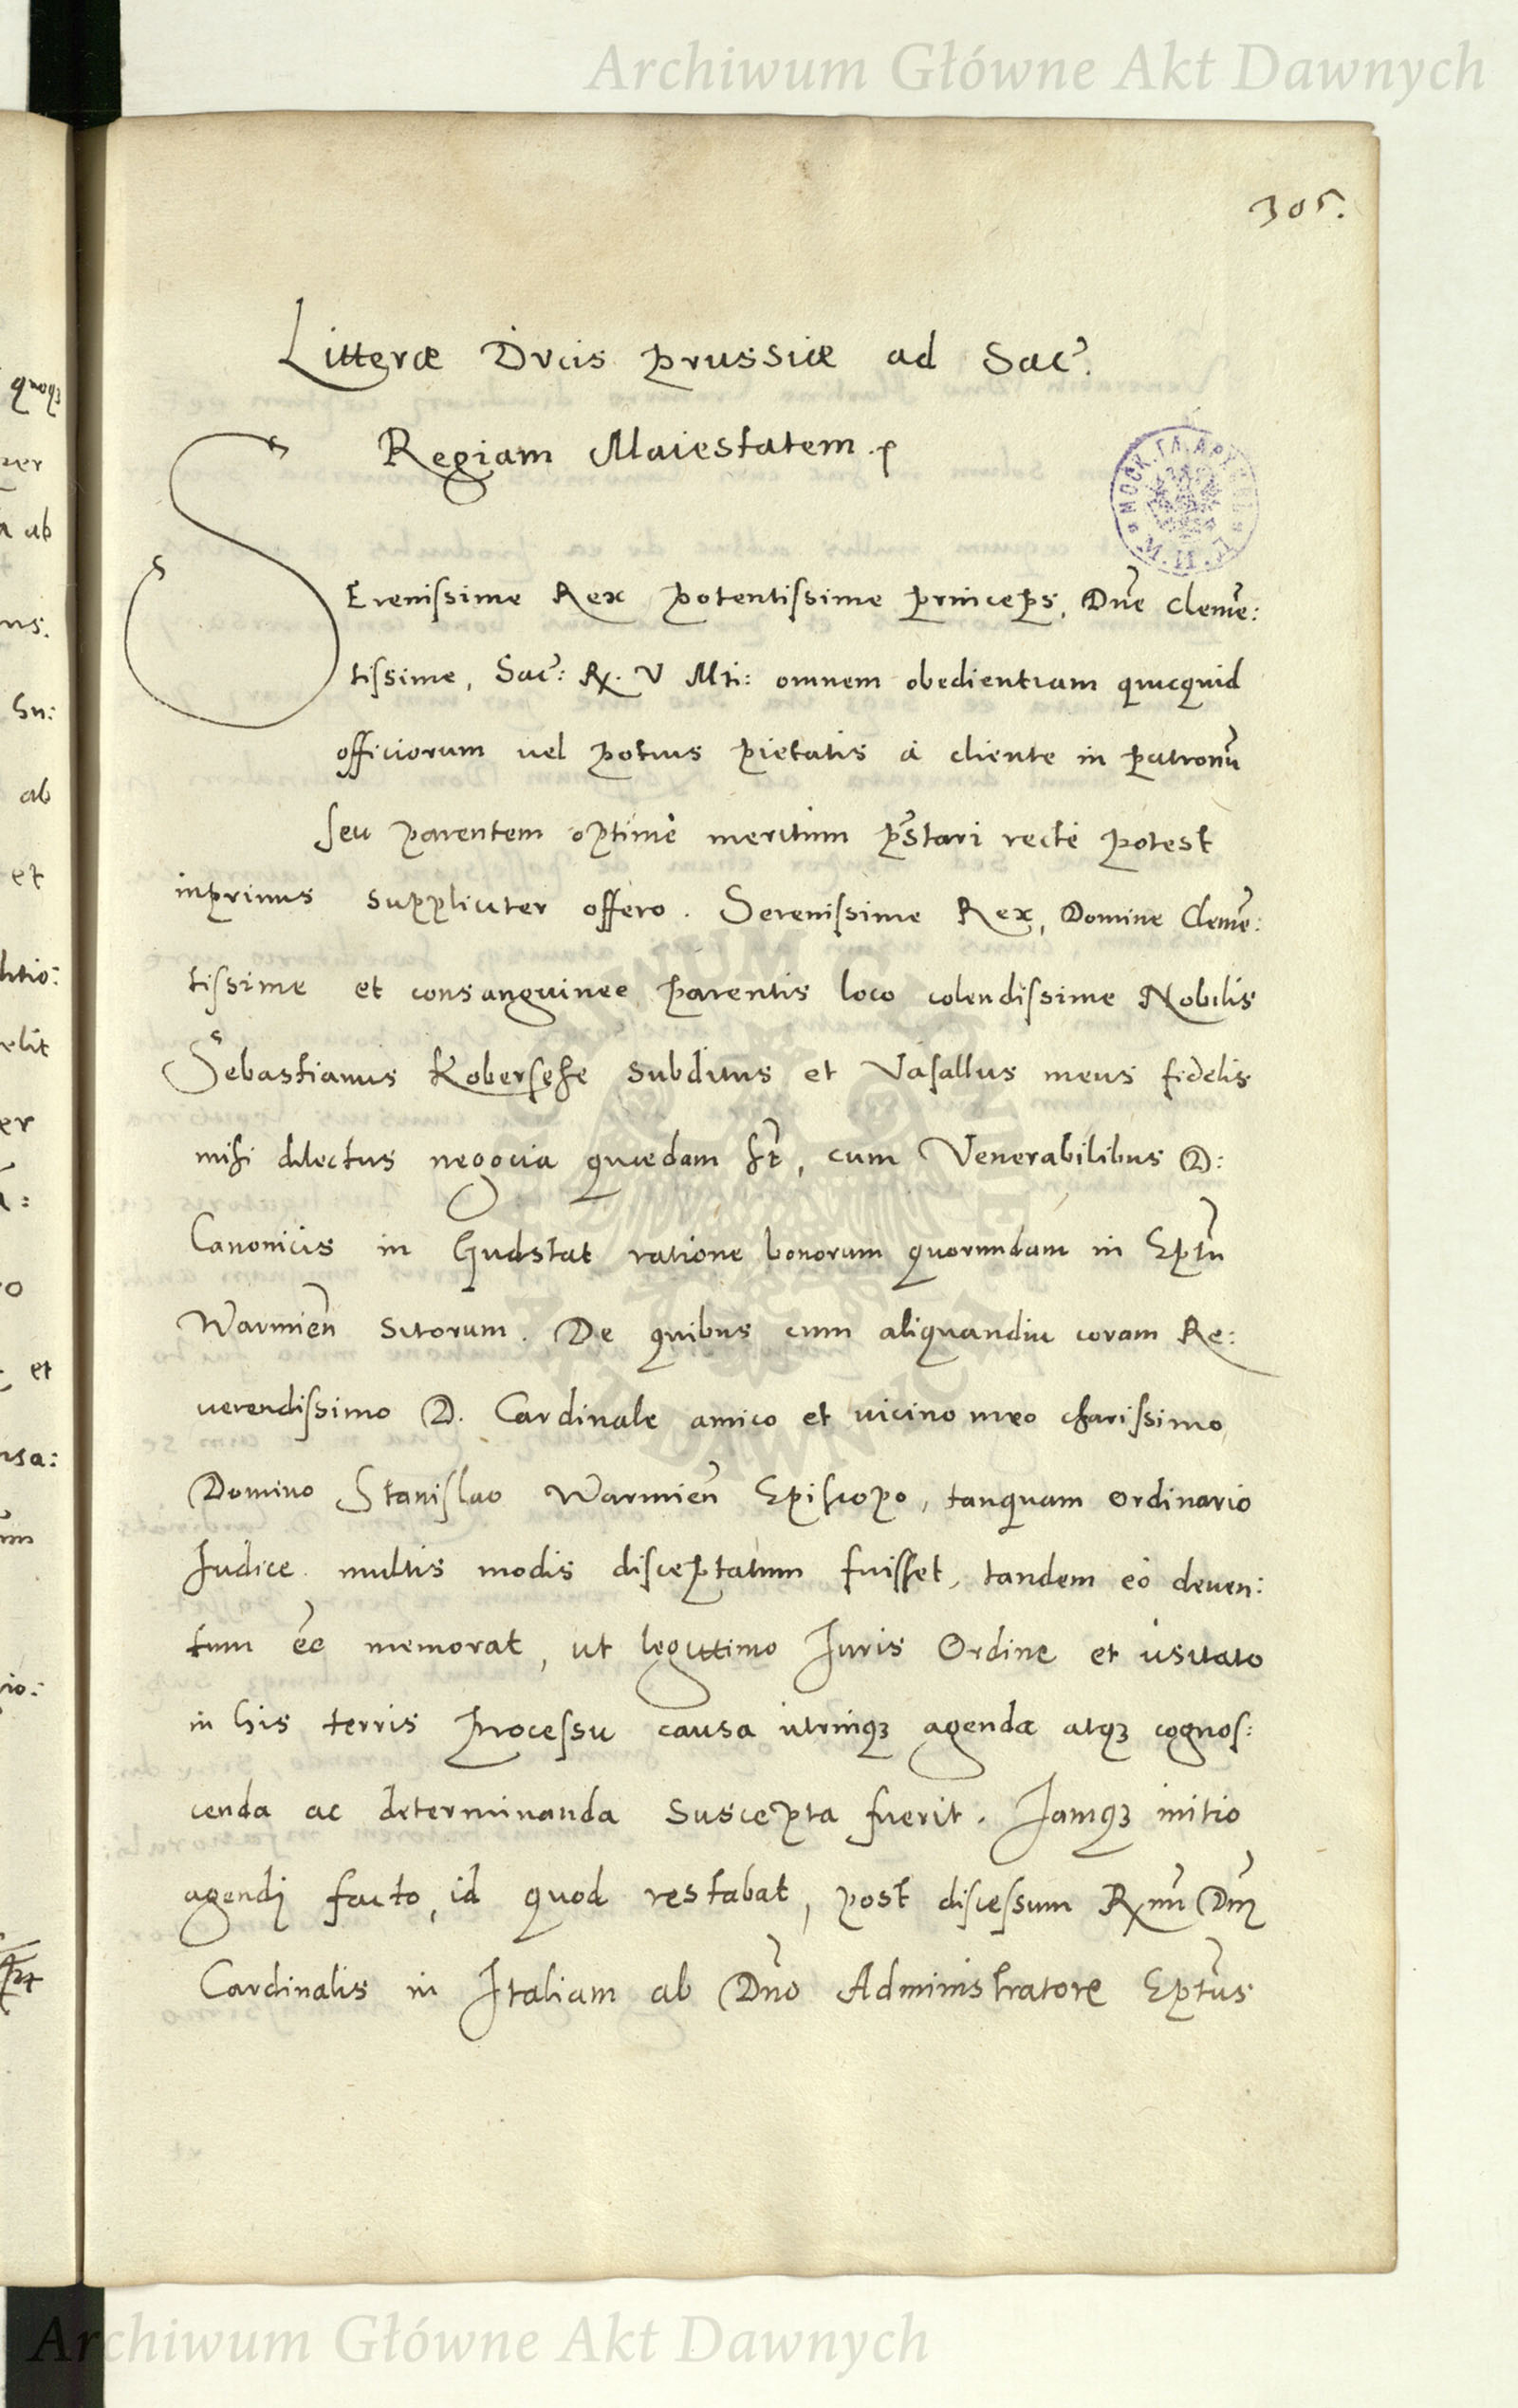 Archiwum Główne Akt Dawnych
305.
Litteræ Ducis Prussiæ ad Sac:
Regiam Maiestatem.
SErenissime Rex potentissime princeps, Dne Cleme:
tissime, Sac: R. V Mti: omnem obedientiam quicquid
officiorum vel potius pietatis à cliente in patronū
seu parentem optimè meritum pr̄stari rectè potest
inprimis suppliciter offero. Serenissime Rex, Domine Cleme:
tissime et consanguinee parentis loco colendissime Nobilis
Sebastianus Kobersehe subditus et Vasallus meus fidelis
mihi dilectus negocia quædam ht, cum Venerabilibus D:
Canonicis in Gudstat ratione bonorum quorundam in Eptu
Warmien̄ sitorum. De quibus cum aliquandiu coram Re:
verendissimo D. Cardinale amico et vicino meo charissimo
Domino Stanislao Warmien̄ Episcopo, tanquam ordinario
Iudice multis modis disceptatum fuisset, tandem eò deven:
tum ēe memorat, ut legittimo Iuris Ordine et usitato
in his terris processu causa utrinq3 agenda atq3 cognos:
cenda ac determinanda suscepta fuerit. Jamq3 initio
agendi facto, id quod restabat, post discessum Rmi Dni
Cardinalis in Italiam ab Dno Administratore Eptus
quoq3
ab
ns.
Su:
ab
et
elit
er
et
nsa:
io:
ARCHIWUM GŁÓWNE
AKT DAWNYCH
Archiwum Główne Akt Dawnych